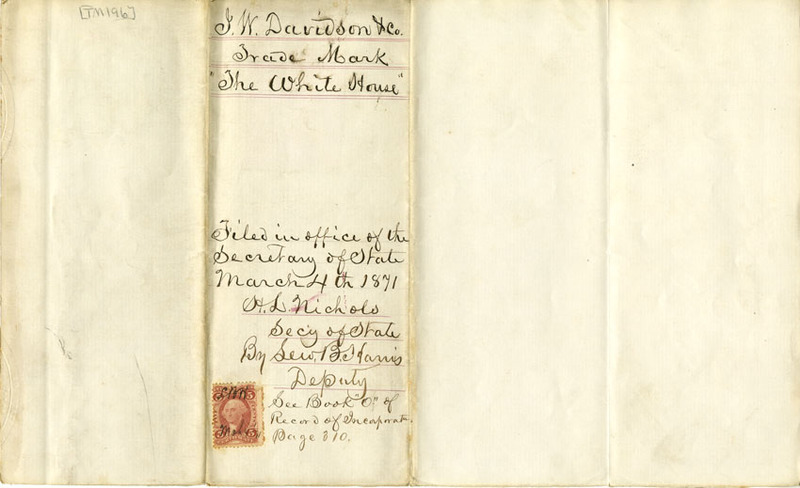 [TM196]
J. W. Davidson & Co.
Trade Mark
"The White House"
Filed in office of the
Secretary of State
March 4th 1871
H. L. Nichols
Secy of State
By Lew. B. Harris
Deputy
See Book "O" of
Record of Incorporat.
Page 310.